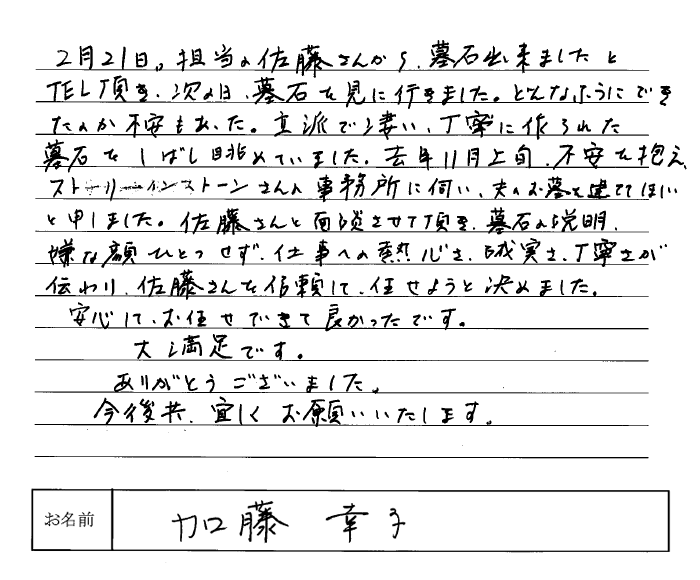 2月21日。担当の佐藤さんから、墓石出来ましたと
TEL頂き、次の日、墓石を見に行きました。どんなふうにでき
たのか不安もあった。立派で凄い、丁寧に作られた
墓石をしばし眺めていました。去年11月上旬、不安を抱え、
ストーリーインストーンさんの事務所に伺い、夫のお墓を建ててほしい
と申しました。佐藤さんと面談させて頂き、墓石の説明、
嫌な顔ひとつせず、仕事への熱心さ、誠実さ、丁寧さが
伝わり、佐藤さんを信頼して、任せようと決めました。
安心して、お任せできて良かったです。
大満足です。
ありがとうございました。
今後共、宜しくお願いいたします。
お名前 加藤 幸子